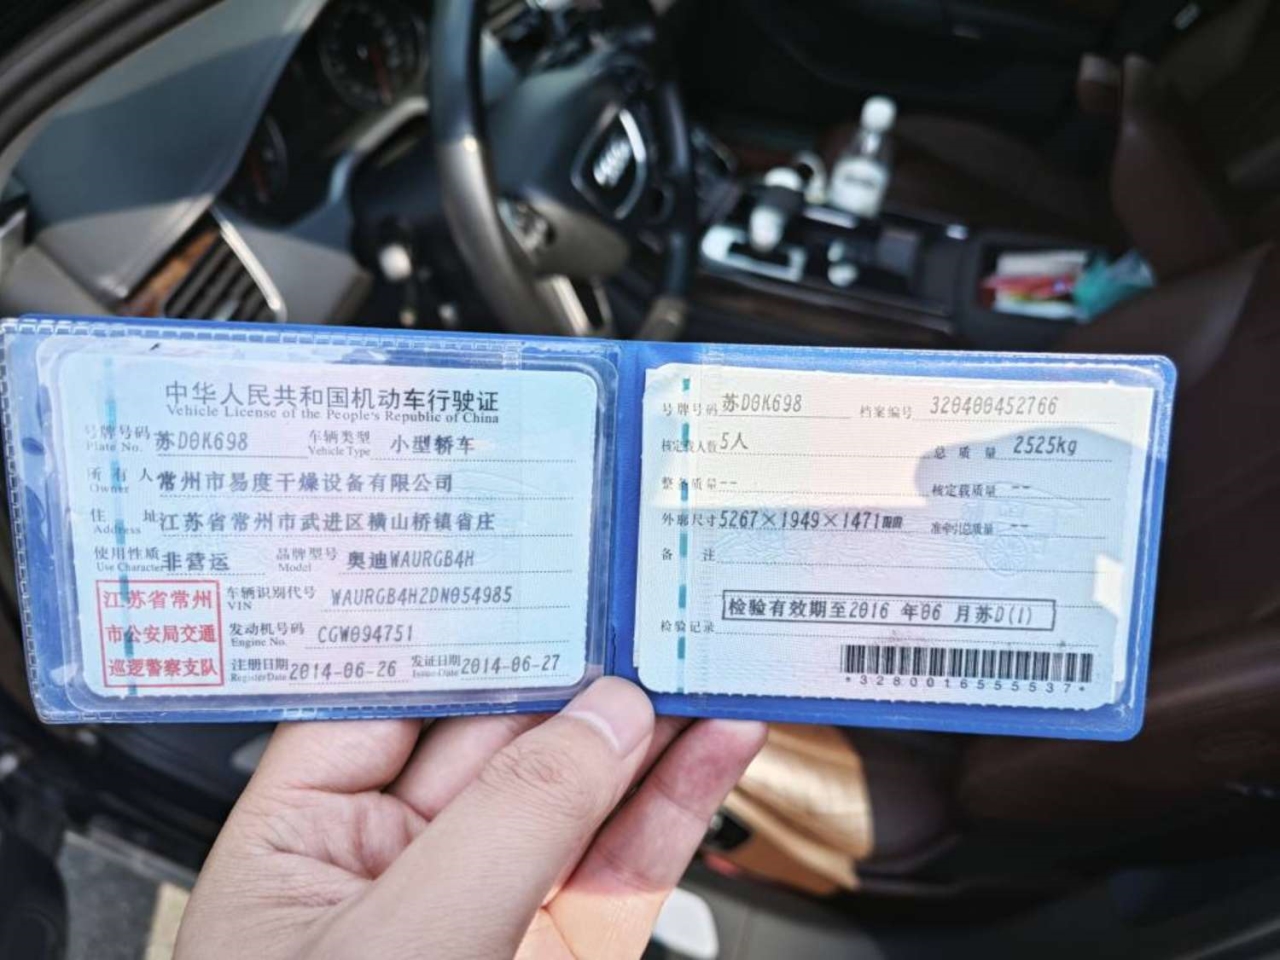 中华人民共和国机动车行驶证
Vehicle License of the People's Republic of China
号牌号码 苏D0K698 车辆类型 小型轿车
Plate No. Vehicle Type
所有人 常州市易度干燥设备有限公司
Owner
住址 江苏省常州市武进区横山桥镇省庄
Address
使用性质 非营运 品牌型号 奥迪WAURGB4H
Use Character Model
江苏省常州
市公安局交通
巡逻警察支队
车辆识别代号 WAURGB4H2DN054985
VIN
发动机号码 CGW094751
Engine No.
注册日期 2014-06-26 发证日期 2014-06-27
Register Date Issue Date
号牌号码 苏D0K698 档案编号 320400452766
核定载人数 5人 总质量 2525kg
整备质量 -- 核定载质量 --
外廓尺寸 5267×1949×1471mm 准牵引总质量 --
备注
检验有效期至2016年06月苏D(1)
检验记录
*3280016555537*